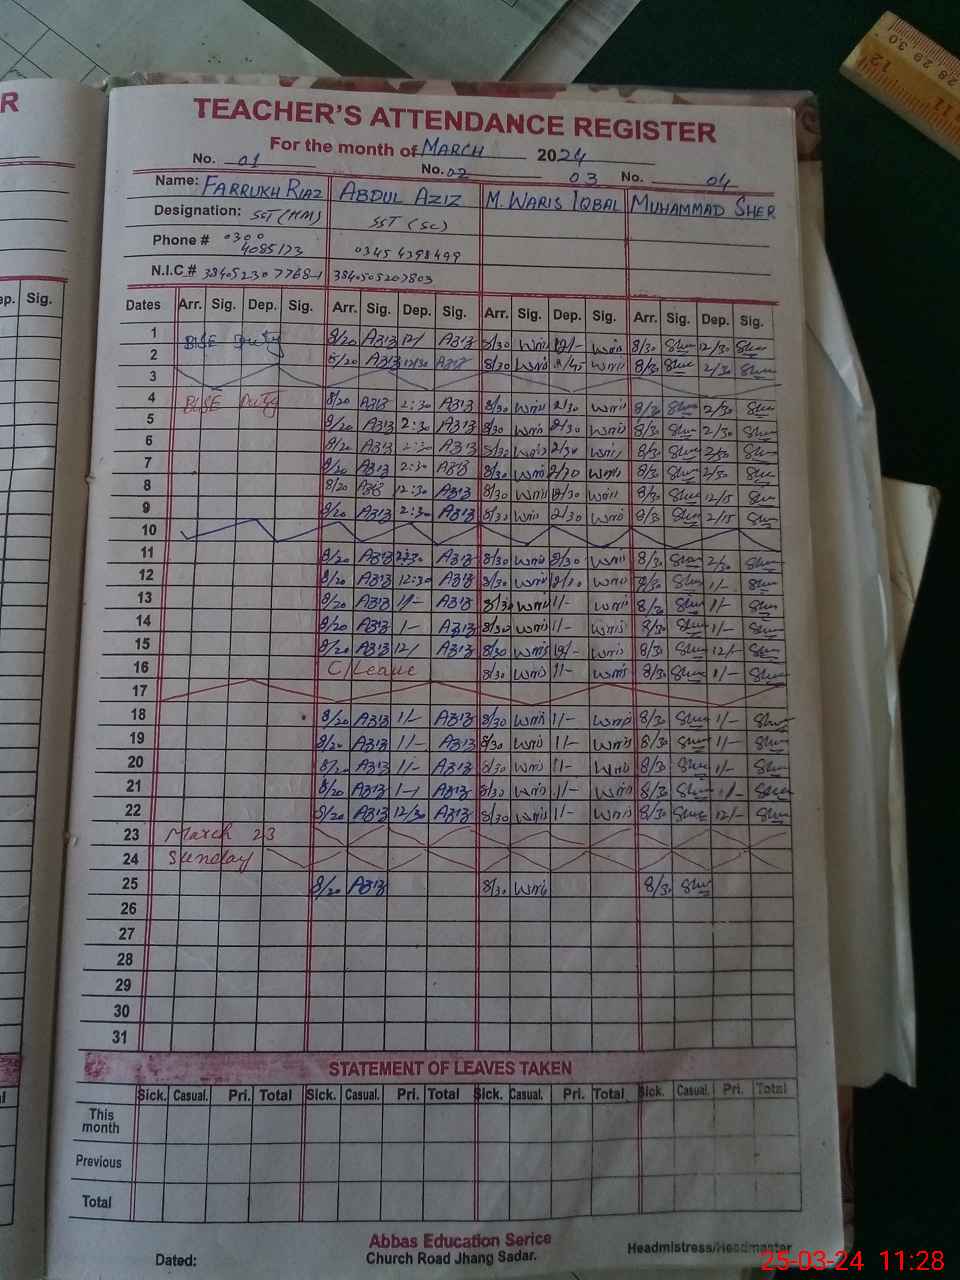 R
TEACHER'S ATTENDANCE REGISTER
For the month of MARCH 2024
No. 01 No. 02 03 No. 04
Name: FARRUKH RIAZ ABDUL AZIZ M. WARIS IQBAL MUHAMMAD SHER
Designation: SST (MM) SST (SC)
Phone # 0300
4085173 0345 4398499
N.I.C #
ep. Sig. Dates Arr. Sig. Dep. Sig. Arr. Sig. Dep. Sig. Arr. Sig. Dep. Sig. Arr. Sig. Dep. Sig.
1 BISE Duty 8/20 Aziz Aziz 8/30 Waris Waris 8/30 Sher 12/30 Sher
2 8/20 Aziz 12:30 Aziz 8/30 Waris Waris 8/30 Sher 2/30 Sher
3
4 BISE Duty 8/20 Aziz 2:30 Aziz 8/30 Waris 2/30 Waris 8/30 Sher 2/30 Sher
5 8/20 Aziz 2:30 Aziz 8/30 Waris 2/30 Waris 8/30 Sher 2/30 Sher
6 8/20 Aziz 2:30 Aziz 8/30 Waris 2/30 Waris 8/30 Sher 2/30 Sher
7 8/20 Aziz 2:30 Aziz 8/30 Waris 2/30 Waris 8/30 Sher 2/30 Sher
8 8/20 Aziz 12:30 Aziz 8/30 Waris Waris 8/30 Sher 12/15 Sher
9 8/20 Aziz 2:30 Aziz 8/30 Waris 2/30 Waris 8/30 Sher 2/15 Sher
10
11 8/20 Aziz Aziz 8/30 Waris 2/30 Waris 8/30 Sher 2/30 Sher
12 8/20 Aziz 12:30 Aziz 8/30 Waris Waris 8/30 Sher 1/- Sher
13 8/20 Aziz 1/- Aziz 8/30 Waris 1/- Waris 8/30 Sher 1/- Sher
14 8/20 Aziz 1/- Aziz 8/30 Waris 1/- Waris 8/30 Sher 1/- Sher
15 8/20 Aziz 12/ Aziz 8/30 Waris 12/- Waris 8/30 Sher 12/- Sher
16 C/Leave 8/30 Waris 1/- Waris 8/30 Sher 1/- Sher
17
18 8/20 Aziz 1/- Aziz 8/30 Waris 1/- Waris 8/30 Sher 1/- Sher
19 8/20 Aziz 1/- Aziz 8/30 Waris 1/- Waris 8/30 Sher 1/- Sher
20 8/20 Aziz 1/- Aziz 8/30 Waris 1/- Waris 8/30 Sher 1/- Sher
21 8/20 Aziz 1/- Aziz 8/30 Waris 1/- Waris 8/30 Sher 1/- Sher
22 8/20 Aziz 12/30 Aziz 8/30 Waris 1/- Waris 8/30 Sher 12/- Sher
23 March 23
24 Sunday
25 8/20 Aziz 8/30 Waris 8/30 Sher
26
27
28
29
30
31
STATEMENT OF LEAVES TAKEN
Sick. Casual. Pri. Total Sick. Casual. Pri. Total Sick. Casual. Pri. Total Sick. Casual. Pri. Total
This
month
Previous
Total
Abbas Education Serice
Church Road Jhang Sadar.
Dated: Headmistress/Headmaster
25-03-24 11:28